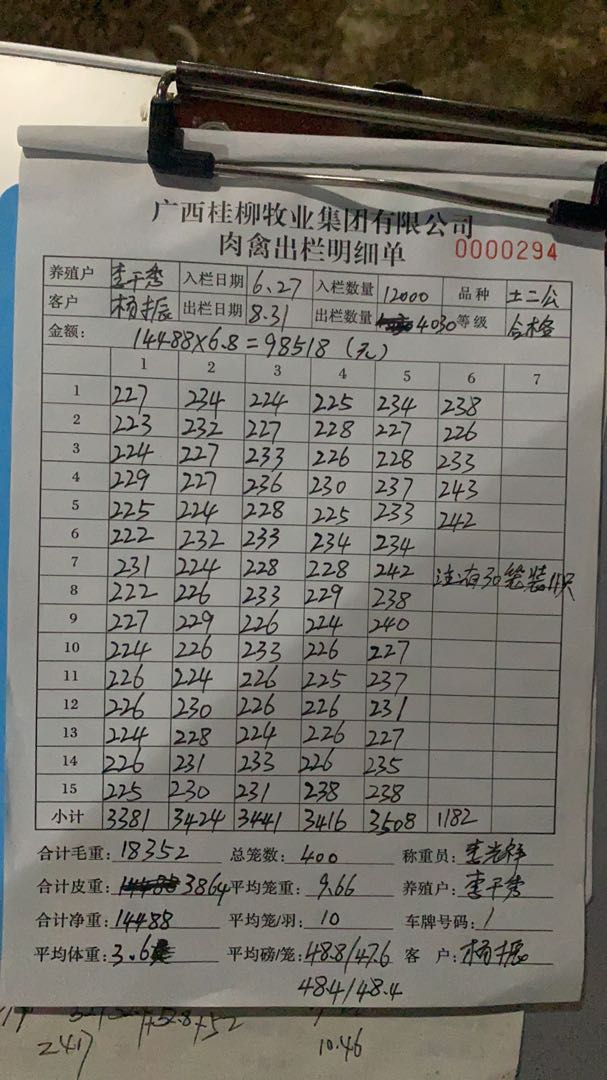 广西桂柳牧业集团有限公司
肉禽出栏明细单 0000294
养殖户 李干秀 入栏日期 6.27 入栏数量 12000 品种 土二公
客户 杨振 出栏日期 8.31 出栏数量 4030 等级 合格
金额: 14488×6.8=98518(元)
1 2 3 4 5 6 7
1 227 234 224 225 234 238
2 223 232 227 228 227 226
3 224 227 233 226 228 233
4 229 227 236 230 237 243
5 225 224 228 225 233 242
6 222 232 233 234 234
7 231 224 228 228 242 注:有30笼装11只
8 222 226 233 229 238
9 227 229 226 224 240
10 224 226 233 226 227
11 226 224 226 225 237
12 226 230 226 226 231
13 224 228 224 226 227
14 226 231 233 226 235
15 225 230 231 238 238
小计 3381 3424 3441 3416 3508 1182
合计毛重: 18352 总笼数: 400 称重员: 李光祥
合计皮重: 3864 平均笼重: 9.66 养殖户: 李干秀
合计净重: 14488 平均笼/羽: 10 车牌号码: 1
平均体重: 3.6 平均磅/笼: 48.8/47.6 客 户: 杨振
48.4/48.4
+52.8+52
2417
10.46